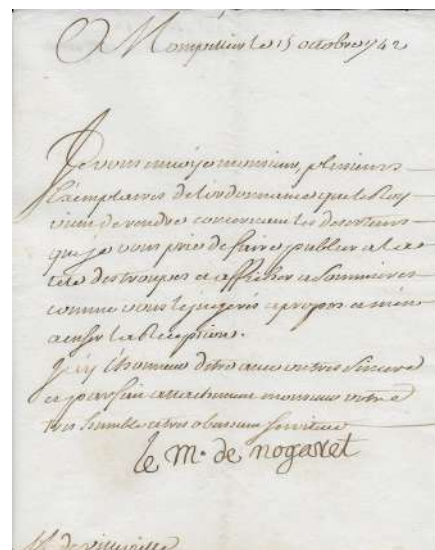 A Montpellier le 15 octobre 1742
Je vous envoye monsieur, plusieurs
Exemplaires de l'ordonnance que le Roy
vient de rendre concernant les deserteurs
que je vous prie de faire publier a la
tete des troupes et afficher a Sommieres
comme vous le jugerés apropos et m'en
accuser la Reception.
J'ay l'honneur d'etre avec un tres sincere
et parfait attachement monsieur votre
tres humble et tres obeissant serviteur
le M. de nogaret